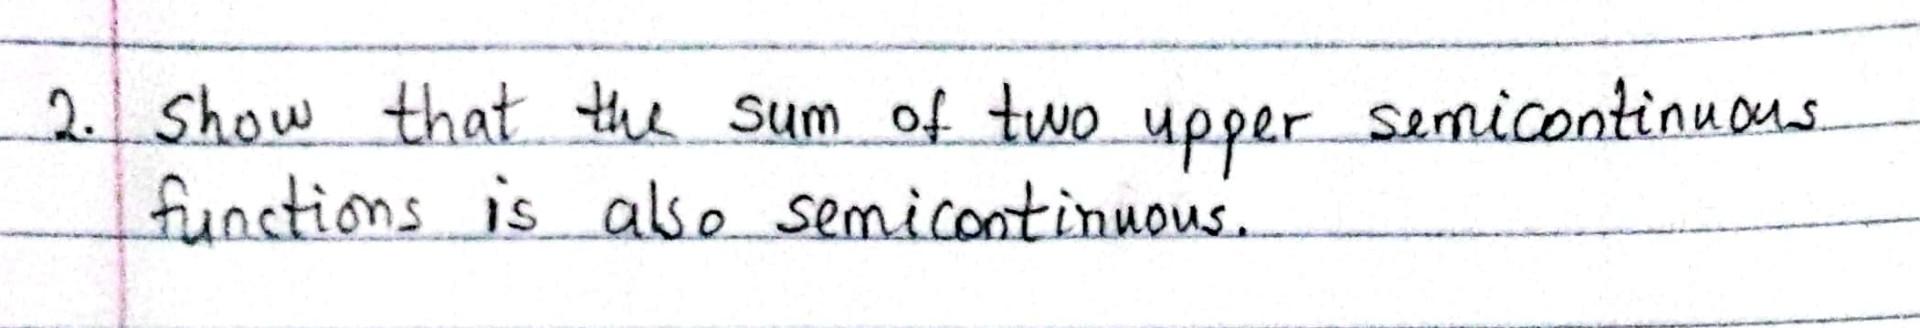 2. Show that the sum of two upper semicontinuous
functions is also semicontinuous.